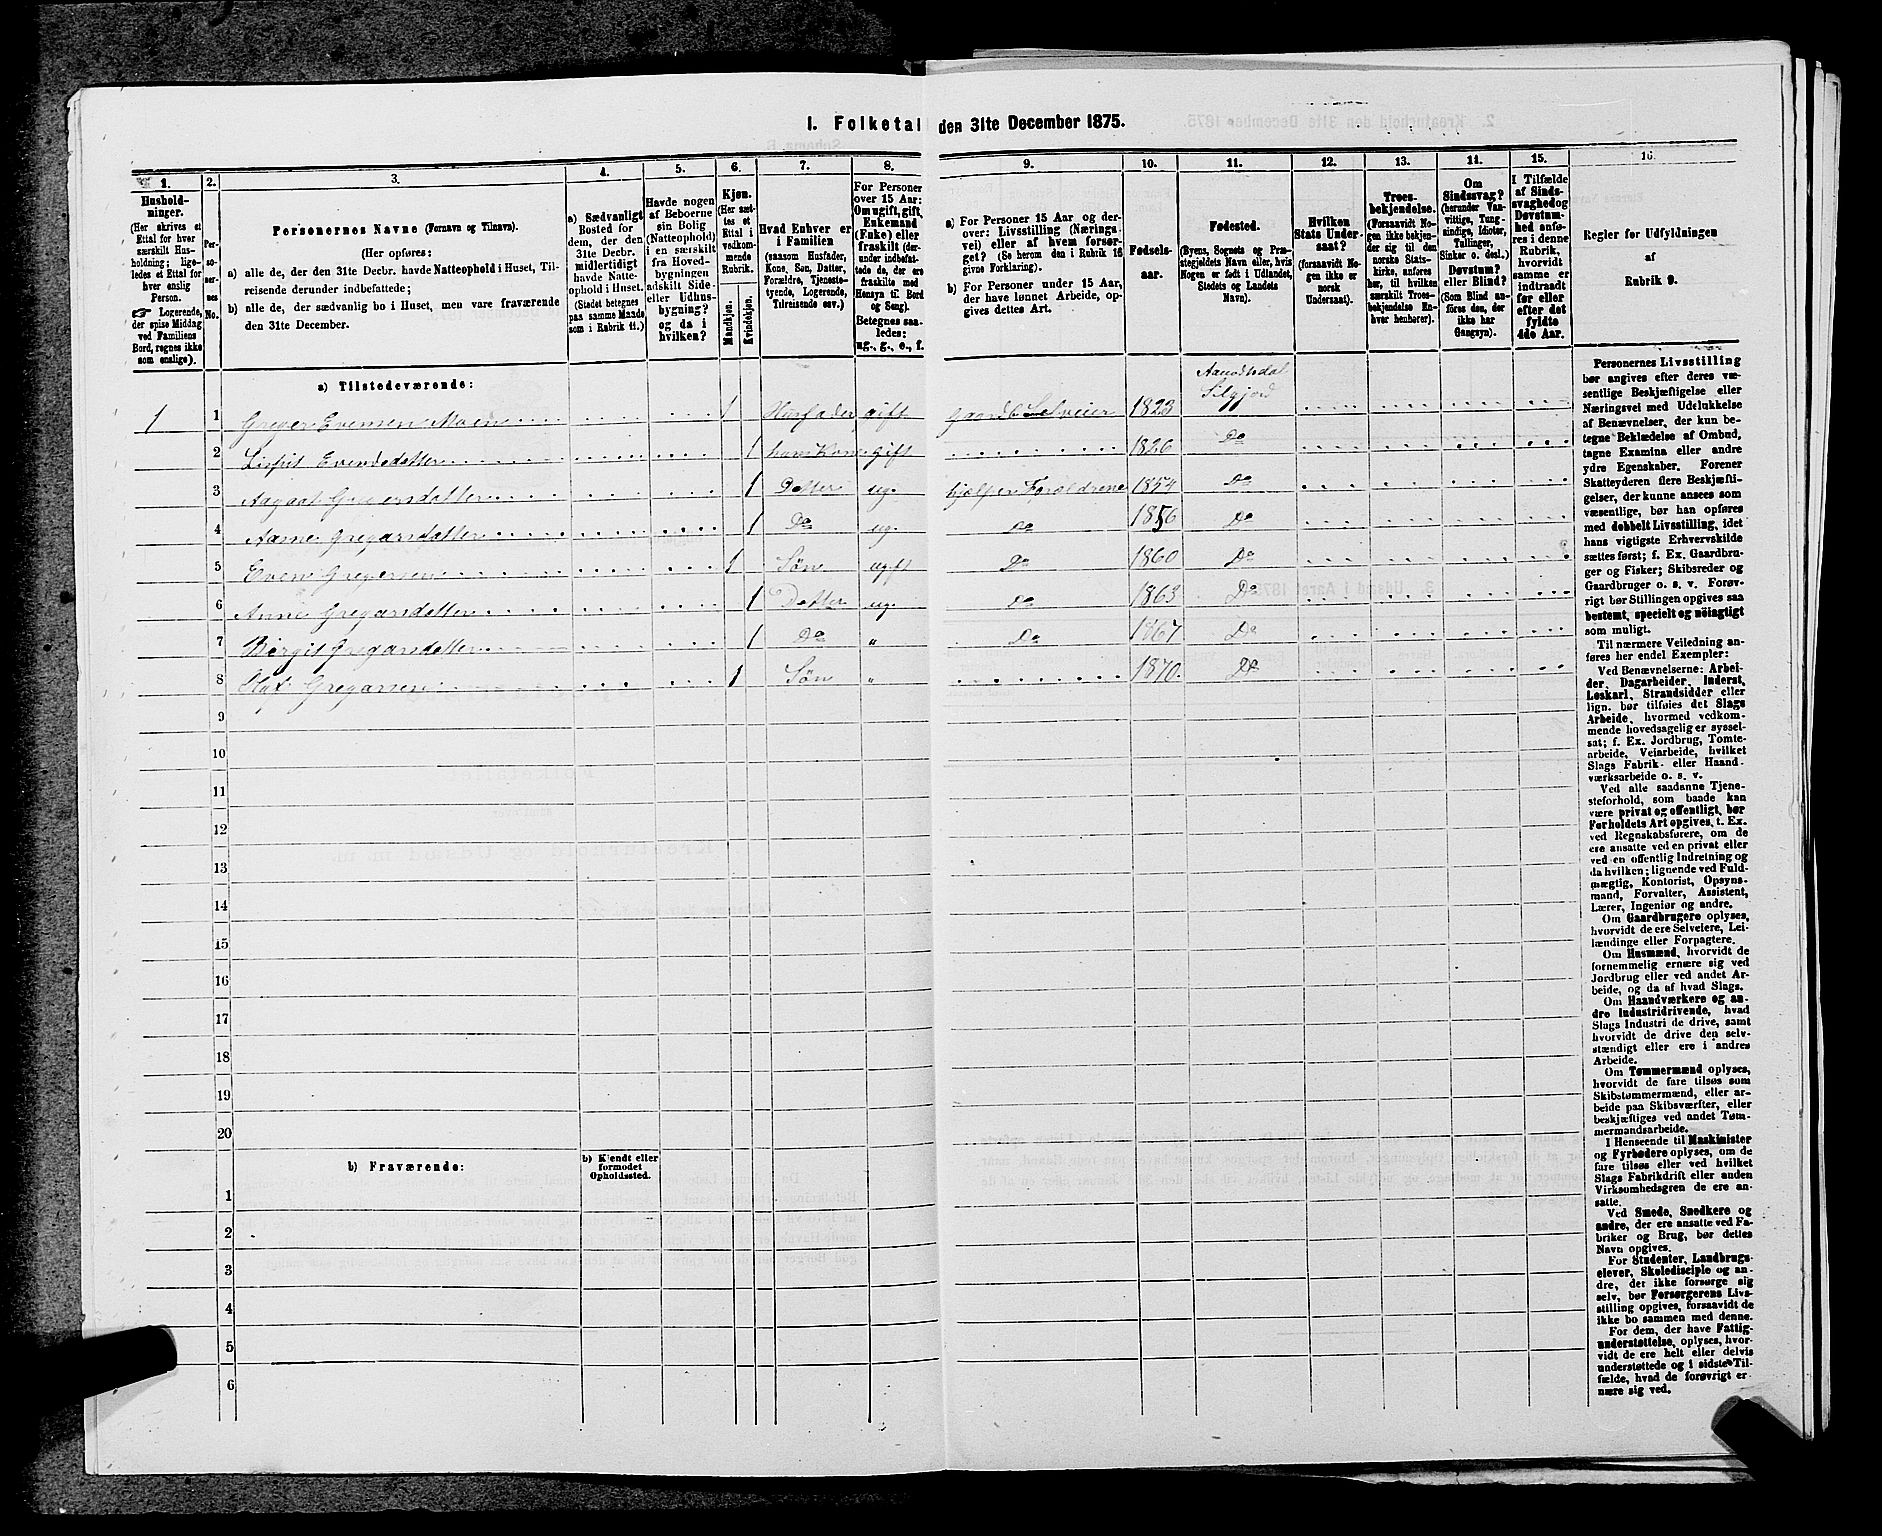 1. Folketal den 31te December 1875.
1.
2.
3.
4.
5.
6.
7.
8.
9.
10.
11.
12.
13.
14.
15.
16.
Hushold-
ninger.
(Her skrives et
Ettal for hver
særskilt Hus-
holdning; lige-
ledes et Ettal for
hver enslig
Person.
☞ Logerende,
der spise Middag
ved Familiens
Bord, regnes ikke
som enslige).
Per-
so-
ner-
nes
No.
Personernes Navne (Fornavn og Tilnavn).
(Her opføres:
a) alle de, der den 31te Decbr. havde Natteophold i Huset, Til-
reisende derunder indbefattede;
b) alle de, der sædvanlig bo i Huset, men vare fraværende
den 31te December.
a) Sædvanligt
Bosted for
dem, der den
31te Decbr.
midlertidigt
havde Natte-
ophold i Huset.
(Stedet betegnes
paa samme Maade
som i Rubrik 11.)
Havde nogen
af Beboerne
sin Bolig
(Natteophold)
i en særskilt
fra Hoved-
bygningen
adskilt Side-
eller Udhus-
bygning?
og da i
hvilken?
Kjøn.
(Her sæt-
tes et
Ettal i
vedkom-
mende
Rubrik.
Mandkjøn.
Kvindekjøn.
Hvad Enhver er
i Familien
(saasom Husfader,
Kone, Søn, Datter,
Forældre, Tjeneste-
tyende, Logerende,
Tilreisende osv.)
For Personer
over 15 Aar:
Om ugift, gift,
Enkemand
(Enke) eller
fraskilt (der-
under indbefat-
tede de, der ere
fraskilte med
Hensyn til Bord
og Seng).
Betegnes saa-
ledes:
ug., g., e., f.
a) For Personer 15 Aar og der-
over: Livsstilling (Nærings-
vei) eller af hvem forsør-
get (Se herom den i Rubrik 16
givne Forklaring).
b) For Personer under 15 Aar,
der have lønnet Arbeide, op-
gives dettes Art.
Fødsels-
aar.
Fødested.
(Byens, Sognets og Præ-
stegjeldets Navn eller, hvis
Nogen er født i Udlandet,
Stedets og Landets
Navn).
Hvilken
Stats Under-
saat?
(forsaavidt No-
gen ikke er
norsk
Undersaat).
Troes-
bekjendelse.
(Forsaavidt No-
gen ikke bekjen-
der sig til den
norske Stats-
kirke, anføres
her, til hvilken
særskilt Troes-
bekjendelse En-
hver henhører).
Om
Sindssvag?
(herunder Van-
vittige, Tung-
sindige, Idioter,
Tullinger,
Sinker o. desl.).
Døvstum?
eller Blind?
(Som Blind an-
føres den, der
ikke har
Gangsyn).
I Tilfælde
af Sinds-
svaghed og
Døvstum-
hed anfø-
res i denne
Rubrik,
hvorvidt
samme er
indtraadt
før eller
efter det
fyldte
4de Aar.
Regler for Udfyldningen
af
Rubrik 9.
a) Tilstedeværende:
1 1 Greger Evensen Moen 1 Husfader gift gaardb Selveier 1823 Silgjord
2 Evensdatter 1 hans Kone gift 1826 Do
3 Aagaat Gregersdatter 1 Datter ug. hjælper Forældrene 1854 Do
4 Aame Gregarsdatter 1 Do ug. do 1856 Do
5 Even Gregersen 1 Søn ugift Do 1860 Do
6 Anne Gregarsdatter 1 Datter ug. do 1863 Do
7 Børgit Gregarsdatter 1 Do " Do 1867 Do
8 Gregarsen 1 Søn " 1870. Do
9
10
11
12
13
14
15
16
17
18
19
20
b) Fraværende:
b) Kjendt eller
formodet
Opholdssted.
1
2
3
4
5
6
Personernes Livsstilling
bør angives efter deres væ-
sentlige Beskjæftigelse eller
Næringsvei med Udelukkelse
af Benævnelser, der kun be-
tegne Beklædelse af Ombud,
tagne Examina eller andre
ydre Egenskaber. Forener
Skatteyderen flere Beskjæfti-
gelser, der kunne ansees som
væsentlige, bør han opføres
med dobbelt Livsstilling, idet
hans vigtigste Erhvervskilde
sættes først; f. Ex. Gaardbru-
ger og Fisker; Skibsreder og
Gaardbruger o. s. v. Forøv-
rigt bør Stillingen opgives saa
bestemt, specielt og nöiagtigt
som muligt.
Til nærmere Veiledning an-
føres her endel Exempler:
Ved Benævnelserne: Arbei-
der, Dagarbeider, Inderst,
Løskarl, Strandsidder eller
lign. bør tilføies det Slags
Arbeide, hvormed vedkom-
mende hovedsagelig er syssel-
sat; f. Ex. Jordbrug, Tomte-
arbeide, Veiarbeide, hvilket
Slags Fabrik- eller Haand-
værksarbeide o. s. v.
Ved alle saadanne Tjene-
steforhold, som baade kan
være privat og offentligt, bør
Forholdets Art opgives, t. Ex.
ved Regnskabsførere, om de
ere ansatte ved en privat eller
ved en offentlig Indretning og
da hvilken; lignende ved Fuld-
mægtig, Kontorist, Opsyns-
mand, Forvalter, Assistent,
Lærer, Ingeniør og andre.
Om Gaardbrugere oplyses,
hvorvidt de ere Selveiere, Lei-
lændinge eller Forpagtere.
Om Husmænd, hvorvidt de
fornemmelig ernære sig ved
Jordbrug eller ved andet Ar-
beide, og da af hvad Slags.
Om Haandværkere og an-
dre Industridrivende, hvad
Slags Industri de drive, samt
hvorvidt de drive den selv-
stændigt eller ere i andres
Arbeide.
Om Tømmermænd oplyses,
hvorvidt de fare tilsøs som
Skibstømmermænd, eller ar-
beide paa Skibsværfter, eller
beskjæftiges ved andet Tøm-
mermandsarbeide.
I Henseende til Maskinister
og Fyrbødere oplyses, om de
fare tilsøs eller ved hvilket
Slags Fabrikdrift eller anden
Virksomhedsgren de ere an-
satte.
Ved Smede, Snedkere og
andre, der ere ansatte ved Fa-
briker og Brug, bør dettes
Navn opgives.
For Studenter, Landbrugs-
elever, Skoledisciple og an-
dre, der ikke forsørge sig
selv, bør Forsørgerens Livs-
stilling opgives, forsaavidt de
ikke bo sammen med denne.
For dem, der have Fattig-
understøttelse, oplyses, hvor-
vidt de ere helt eller delvis
understøttede og i sidste Til-
fælde, hvad de forøvrigt er-
nære sig ved.